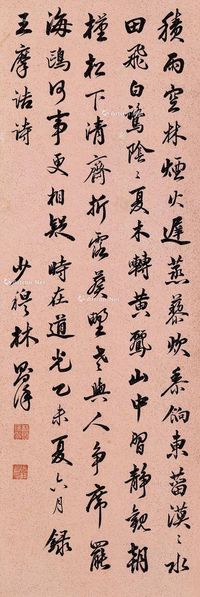 積雨空林煙火遲蒸藜炊黍餉東菑漠〻水
田飛白鷺陰〻夏木轉黃鸝山中習靜觀朝
槿松下清齋折露葵野老與人爭席罷
海鷗何事更相疑時在道光乙未夏六月錄
王摩詰詩
少穆林則徐